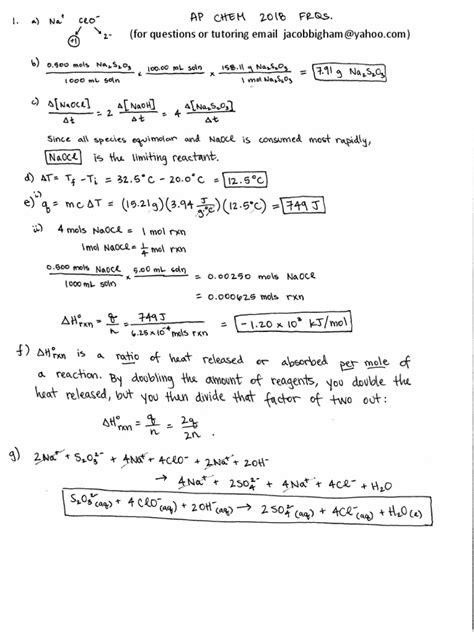 AP CHEM 2018 FRQs.
(for questions or tutoring email jacobbigham@yahoo.com)
1. a) Na⁺ ClO⁻
+1 2-
b) 0.500 mols Na₂S₂O₃ / 1000 mL soln × 100.00 mL soln × 158.11 g Na₂S₂O₃ / 1 mol Na₂S₂O₃ = 7.91 g Na₂S₂O₃
c) Δ[NaOCl]/Δt = 2 Δ[NaOH]/Δt = 4 Δ[Na₂S₂O₃]/Δt
Since all species equimolar and NaOCl is consumed most rapidly,
NaOCl is the limiting reactant.
d) ΔT = Tf - Ti = 32.5°C - 20.0°C = 12.5°C
e) i) q = mcΔT = (15.21g)(3.94 J/g°C)(12.5°C) = 749 J
ii) 4 mols NaOCl = 1 mol rxn
1 mol NaOCl = 1/4 mol rxn
0.500 mols NaOCl / 1000 mL soln × 5.00 mL soln = 0.00250 mols NaOCl
= 0.000625 mols rxn
ΔH°rxn = q/n = 749 J / 6.25×10⁻⁴ mols rxn = -1.20 × 10³ kJ/mol
f) ΔH°rxn is a ratio of heat released or absorbed per mole of
a reaction. By doubling the amount of reagents, you double the
heat released, but you then divide that factor of two out:
ΔH°rxn = q/n = 2q/2n.
g) 2Na⁺ + S₂O₃²⁻ + 4Na⁺ + 4ClO⁻ + 2Na⁺ + 2OH⁻
→ 4Na⁺ + 2SO₄²⁻ + 4Na⁺ + 4Cl⁻ + H₂O
S₂O₃²⁻(aq) + 4ClO⁻(aq) + 2OH⁻(aq) → 2SO₄²⁻(aq) + 4Cl⁻(aq) + H₂O(l)